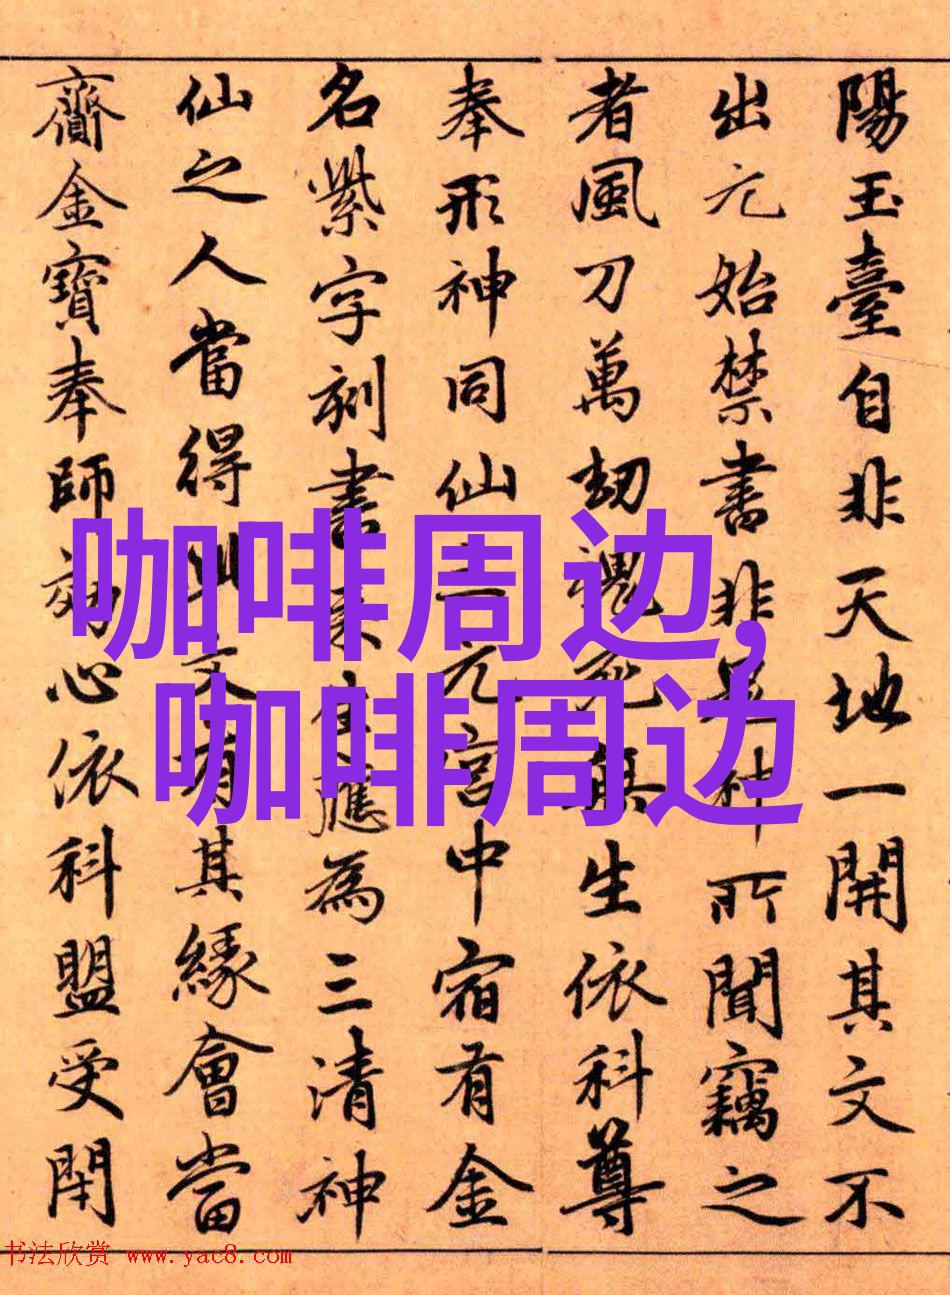 陽玉臺自非天地一開其文不
出元始禁書非鬼神所聞竊之
者風刀萬劫魂死無生依科尊
奉形神同仙三元宮中宿有金
名紫字刻書來生應為三清神
仙之人當得此文有其緣會當
齎金寶奉師為心依科盟受閇
咖啡周边,
咖啡周边
书法欣赏 www.yac8.com